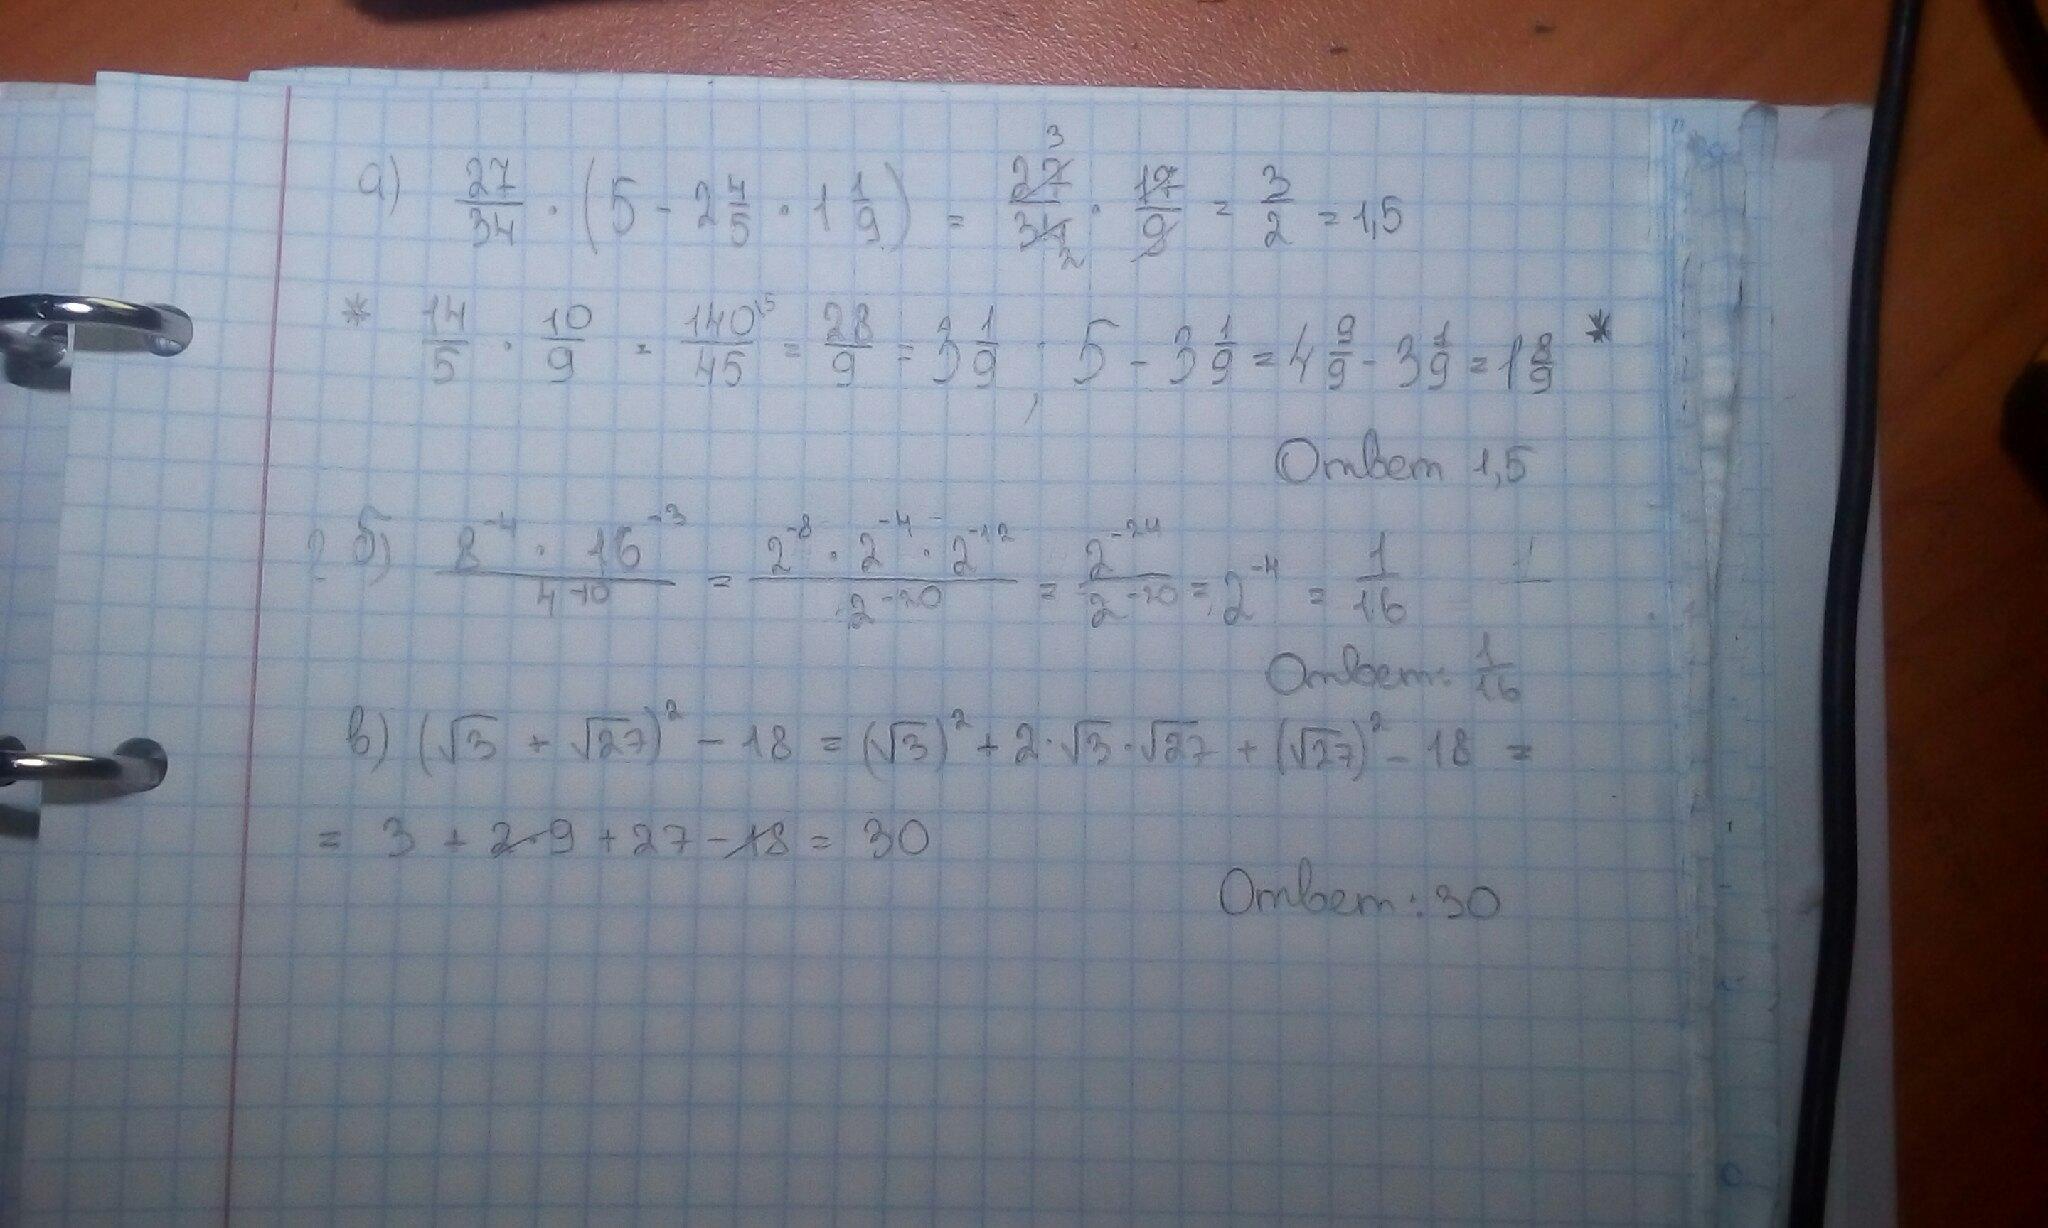 а) 27/34 · (5 - 2 4/5 · 1 1/9) = 27/34 · 17/9 = 3/2 = 1,5
* 14/5 · 10/9 = 140/45 = 28/9 = 3 1/9 , 5 - 3 1/9 = 4 9/9 - 3 1/9 = 1 8/9 *
Ответ 1,5
б) 8⁻⁴ · 16⁻³ / 4⁻¹⁰ = 2⁻⁸ · 2⁻⁴ · 2⁻¹² / 2⁻²⁰ = 2⁻²⁴ / 2⁻²⁰ = 2⁻⁴ = 1/16
Ответ: 1/16
в) (√3 + √27)² - 18 = (√3)² + 2·√3·√27 + (√27)² - 18 =
= 3 + 2·9 + 27 - 18 = 30
Ответ: 30